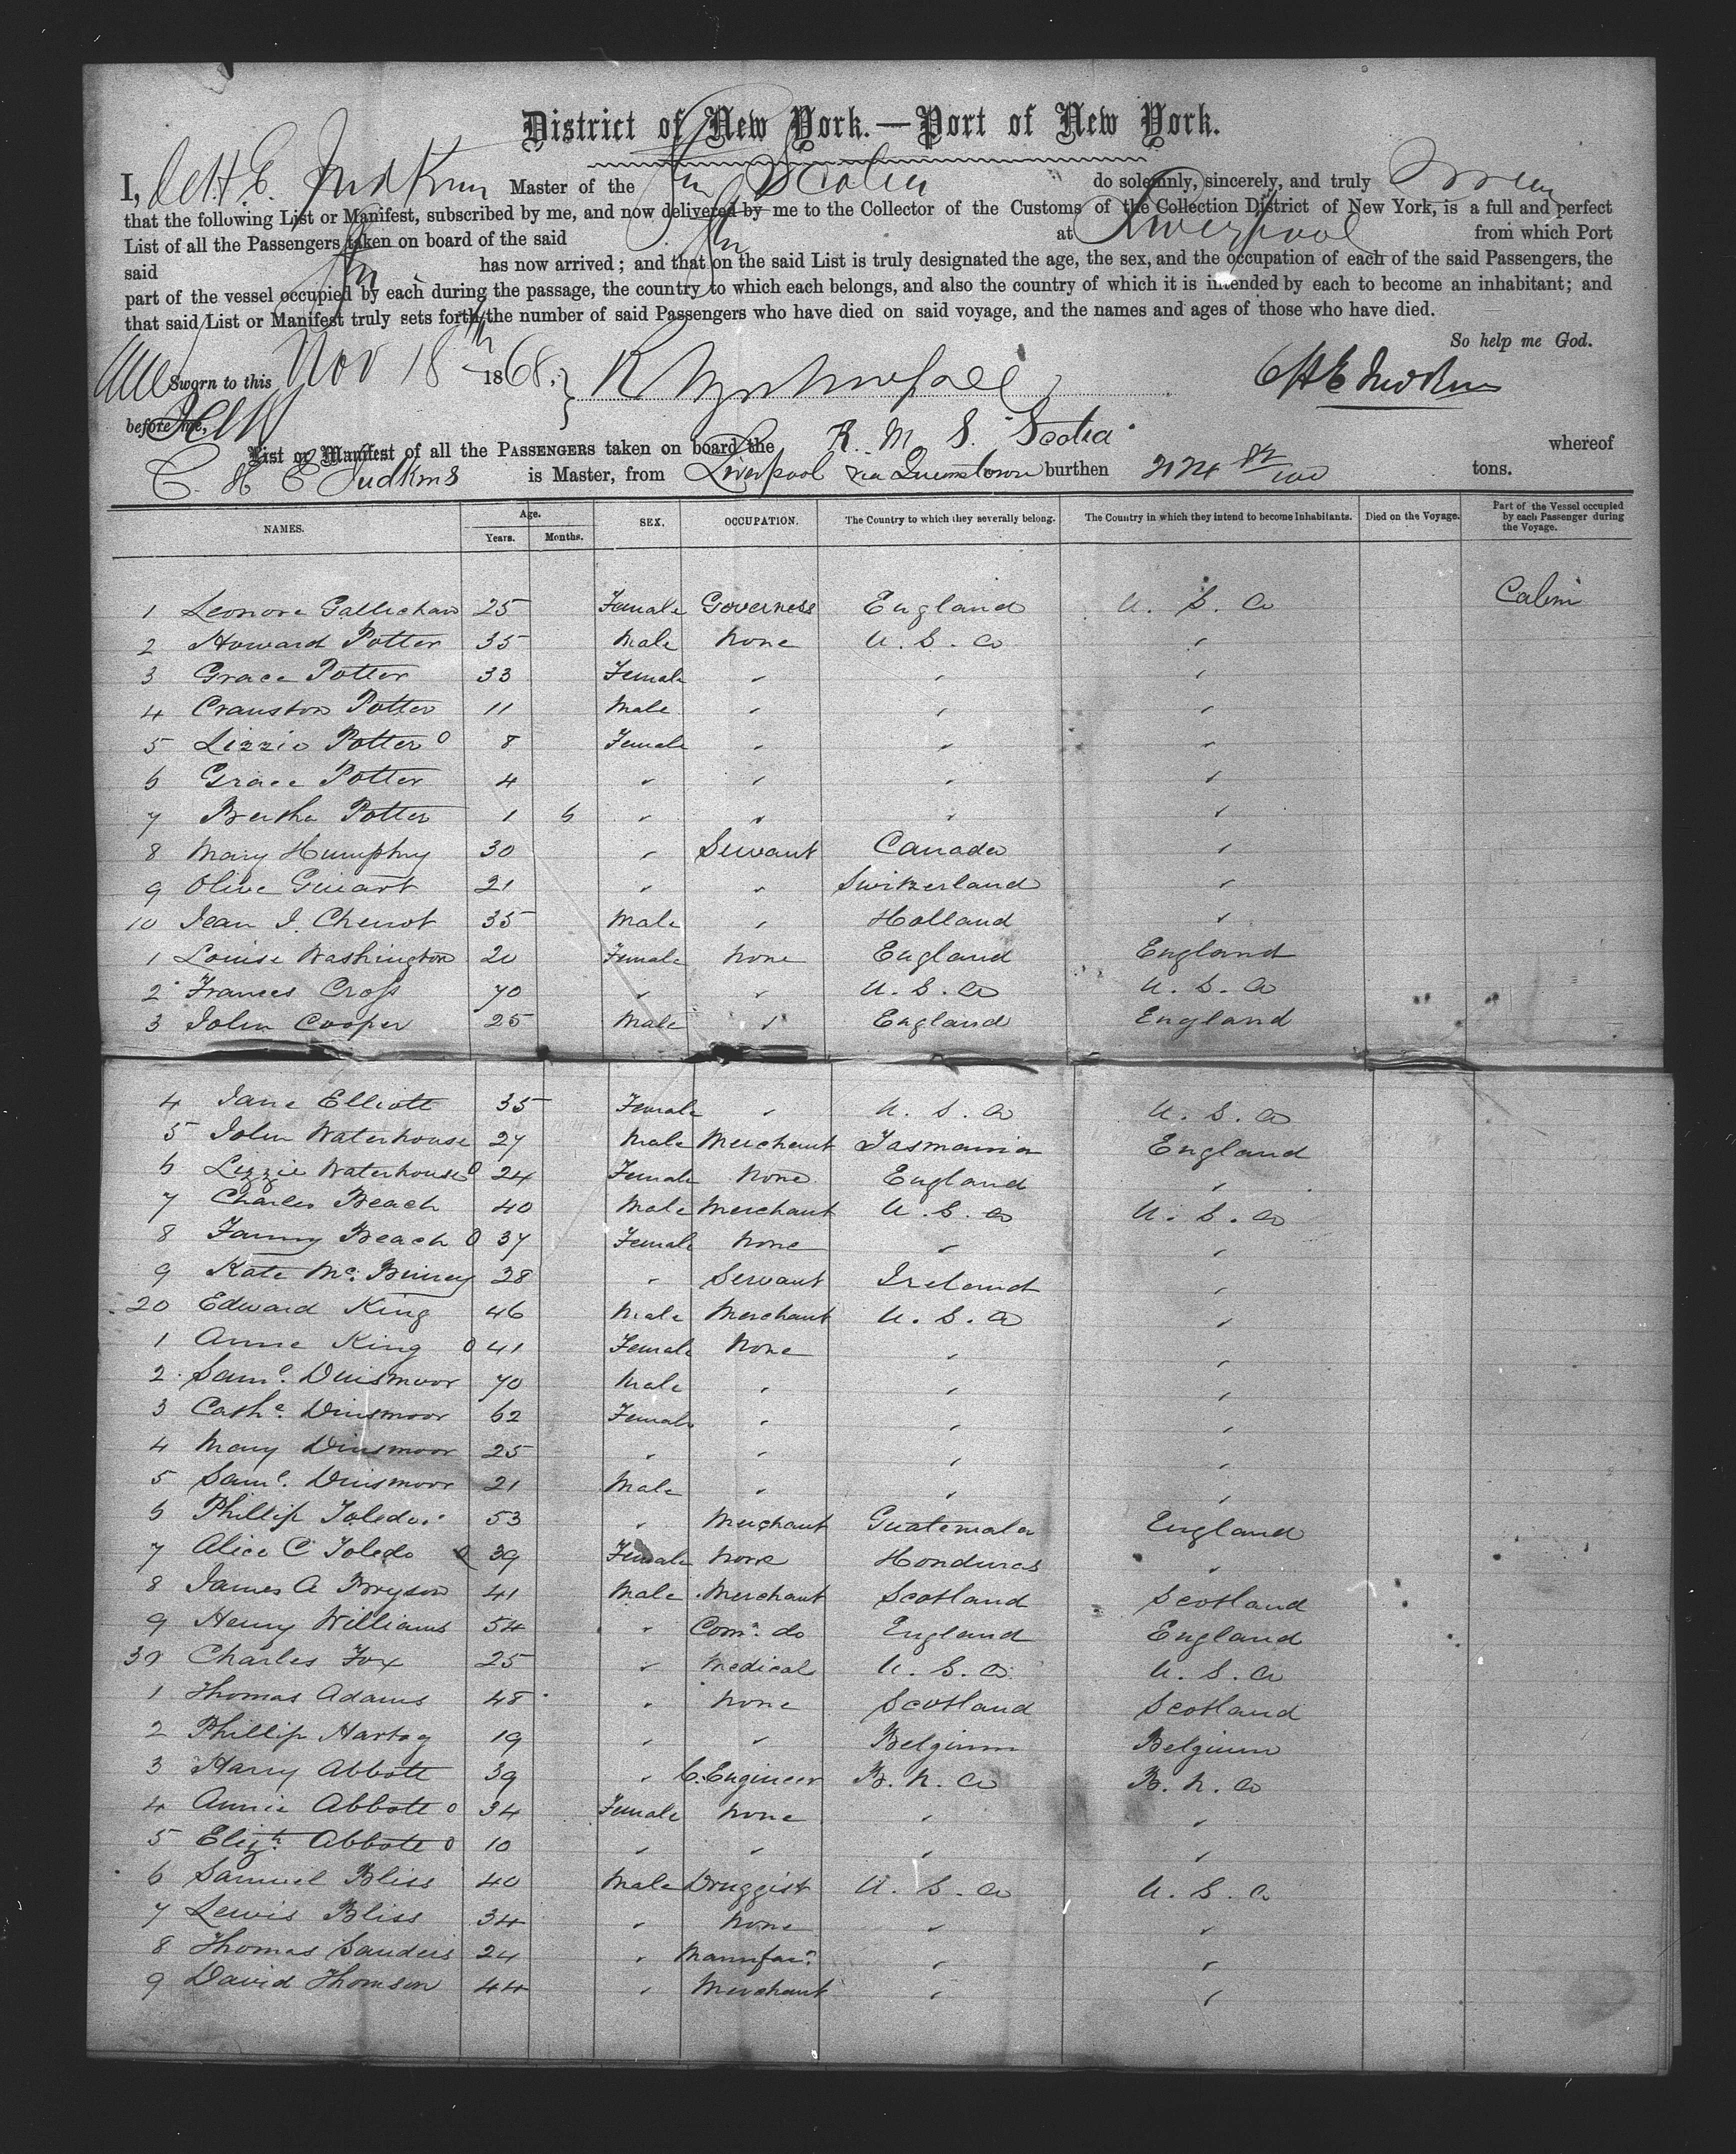 District of New York.—Port of New York.
I, C H E Judkins Master of the Str Scotia do solemnly, sincerely, and truly Swear
that the following List or Manifest, subscribed by me, and now delivered by me to the Collector of the Customs of the Collection District of New York, is a full and perfect
List of all the Passengers taken on board of the said Str at Liverpool from which Port
said Str has now arrived; and that on the said List is truly designated the age, the sex, and the occupation of each of the said Passengers, the
part of the vessel occupied by each during the passage, the country to which each belongs, and also the country of which it is intended by each to become an inhabitant; and
that said List or Manifest truly sets forth the number of said Passengers who have died on said voyage, and the names and ages of those who have died.
So help me God.
Sworn to this Nov 18th 1868, C H E Judkins
before me,
List or Manifest of all the PASSENGERS taken on board the R. M. S. Scotia whereof
C. H. E Judkins is Master, from Liverpool via Queenstown burthen 2124 82/100 tons.
NAMES. Age. Years. Months. SEX. OCCUPATION. The Country to which they severally belong. The Country in which they intend to become Inhabitants. Died on the Voyage. Part of the Vessel occupied by each Passenger during the Voyage.
1 Leonore Gallichan 25 Female Governess England U. S. A Cabin
2 Howard Potter 35 Male None U. S. A "
3 Grace Potter 33 Female " " "
4 Cranston Potter 11 Male " " "
5 Lizzie Potter 0 8 Female " " "
6 Grace Potter 4 " " " "
7 Bertha Potter 1 6 " " " "
8 Mary Humphry 30 " Servant Canada "
9 Olive 21 " " Switzerland "
10 Jean J. Chenot 35 Male " Holland "
1 Louise Washington 20 Female None England England
2 Frances Cross 70 " " U. S. A U. S. A
3 John Cooper 25 Male " England England
4 Jane Elliott 35 Female " U. S. A U. S. A
5 John Waterhouse 27 Male Merchant Tasmania England
6 Lizzie Waterhouse 0 24 Female None England "
7 Charles Beach 40 Male Merchant U. S. A U. S. A
8 Fanny Beach 0 37 Female None " "
9 Kate Mc. Binney 28 " Servant Ireland "
20 Edward King 46 Male Merchant U. S. A "
1 Anne King 0 41 Female None " "
2 Saml. Dinsmoor 70 Male " " "
3 Cathe. Dinsmoor 62 Female " " "
4 Mary Dinsmoor 25 " " " "
5 Saml. Dinsmoor 21 Male " " "
6 Phillip Toledo 53 " Merchant Guatemala England
7 Alice C Toledo 0 39 Female None Honduras "
8 James A Bryson 41 Male Merchant Scotland Scotland
9 Henry Williams 54 " Comn. do England England
30 Charles Fox 25 " Medical U. S. A U. S. A
1 Thomas Adams 48 " None Scotland Scotland
2 Phillip Hartog 19 " " Belgium Belgium
3 Harry Abbott 39 " C. Engineer B. N. A B. N. A
4 Annie Abbott 0 34 Female None " "
5 Elizth. Abbott 0 10 " " " "
6 Samuel Bliss 40 Male Druggist U. S. A U. S. A
7 Lewis Bliss 34 " None " "
8 Thomas Sanders 24 " Manufacr. " "
9 David Thomson 44 " Merchant " "